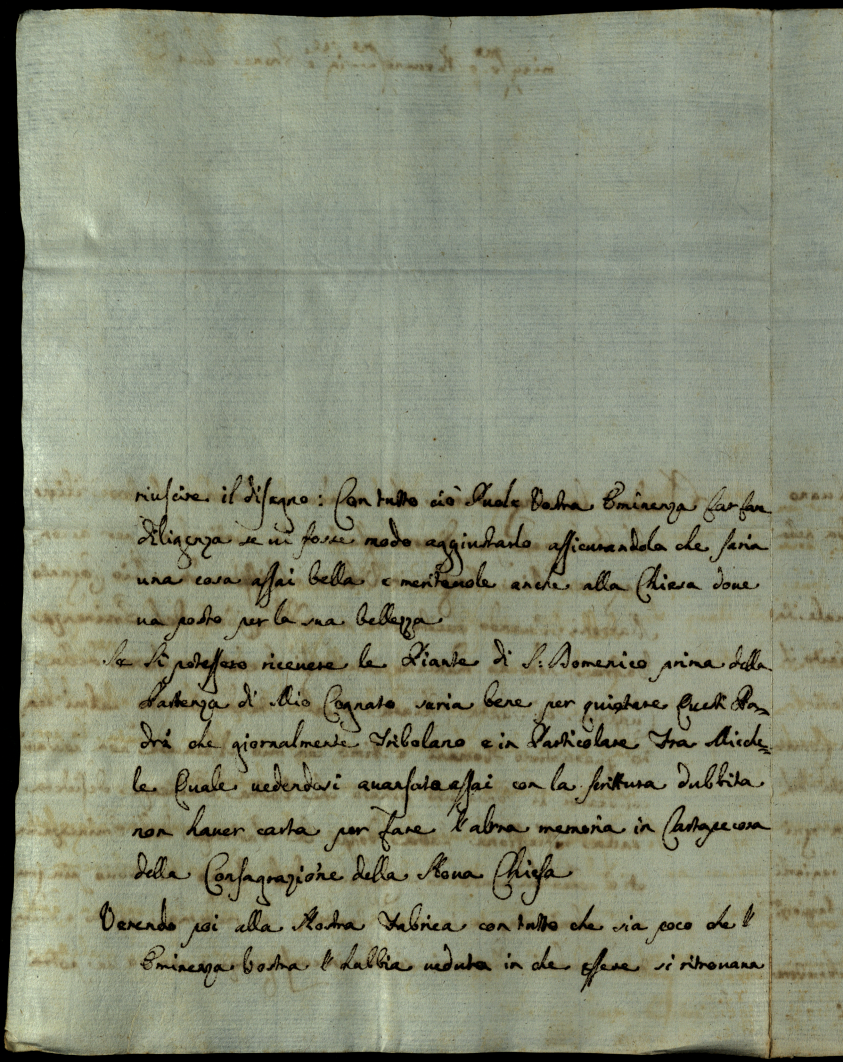 riuscire il disegno: Con tutto ciò Puole Vostra Eminenza far fare
diligenza se vi fosse modo aggiustarlo assicurandola che saria
una cosa assai bella e meritevole anche alla Chiesa dove
va posto per la sua bellezza
Se Si potessero ricevere le Piante di S: Domenico prima della
Partenza di Mio Cognato saria bene per quietare Questi Pa=
dri che giornalmente Tribolano e in Particolare Fra Miche=
le Quale vedendosi avansato assai con la scrittura dubbita
non haver carta per fare l'altra memoria in Cartapecora
della Consagrazione della Nova Chiesa
Venendo poi alla Nostra Fabrica con tutto che sia poco che l'
Eminenza Vostra l'habbia veduta in che essere si ritrovava